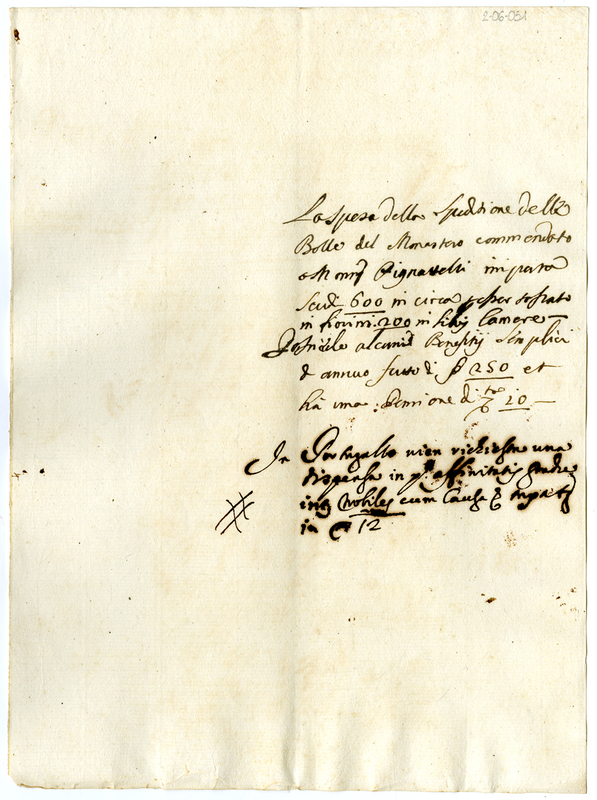 2-06-051
La spesa della speditione delle
Bolle del Monastero commendato
a Monsr Pignattelli importa
scudi 600 in circa per esser tassato
in fiorini 200 in libris Camere
Possiede alcuni Benefitij semplici
d annuo frutto di 250 et
há una Pensione di 20
In Portogallo vien richiesta una
dispensa in po affinitatis gradu
inter Nobiles cum Causa
in 12